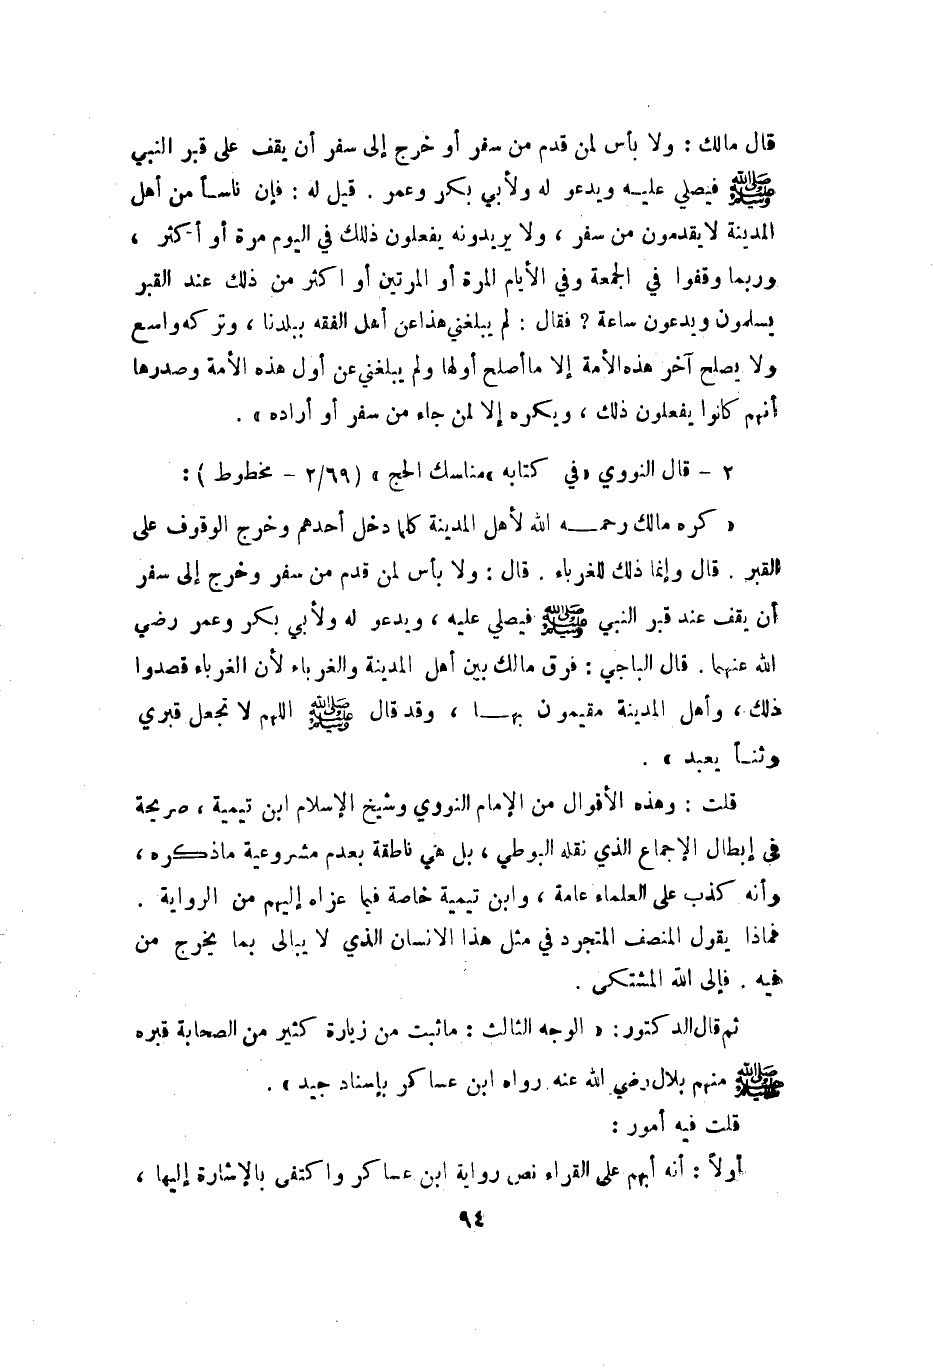 قال مالك : ولا بأس لمن قدم من سفر أو خرج إلى سفر أن يقف على قبر النبي
ﷺ فيصلي عليه ويدعو له ولأبي بكر وعمر . قيل له : فإن ناساً من أهل
المدينة لا يقدمون من سفر ، ولا يريدونه يفعلون ذلك في اليوم مرة أو أكثر ،
وربما وقفوا في الجمعة وفي الأيام المرة أو المرتين أو اكثر من ذلك عند القبر
يسلمون ويدعون ساعة ? فقال : لم يبلغني هذا عن أهل الفقه ببلدنا ، وتركه واسع
ولا يصلح آخر هذه الأمة إلا ما أصلح أولها ولم يبلغني عن أول هذه الأمة وصدرها
أنهم كانوا يفعلون ذلك ، ويكره إلا لمن جاء من سفر أو أراده » .
٢ - قال النووي «في كتابه «مناسك الحج » (٢/٦٩ - مخطوط ) :
« كره مالك رحمه الله لأهل المدينة كلما دخل أحدهم وخرج الوقوف على
القبر . قال وإنما ذلك للغرباء . قال : ولا بأس لمن قدم من سفر وخرج إلى سفر
أن يقف عند قبر النبي ﷺ فيصلي عليه ، ويدعو له ولأبي بكر وعمر رضي
الله عنهما . قال الباجي : فرق مالك بين أهل المدينة والغرباء لأن الغرباء قصدوا
ذلك ، وأهل المدينة مقيمون بها ، وقد قال ﷺ اللهم لا تجعل قبري
وثناً يعبد » .
قلت : وهذه الأقوال من الإمام النووي وشيخ الإسلام ابن تيمية ، صريحة
في إبطال الإجماع الذي نقله البوطي ، بل هي ناطقة بعدم مشروعية ماذكره ،
وأنه كذب على العلماء عامة ، وابن تيمية خاصة فيما عزاه إليهم من الرواية .
فماذا يقول المنصف المتجرد في مثل هذا الانسان الذي لا يبالى بما يخرج من
فيه . فإلى الله المشتكى .
ثم قال الدكتور : « الوجه الثالث : ماثبت من زيارة كثير من الصحابة قبره
ﷺ منهم بلال رضي الله عنه رواه ابن عساكر بإسناد جيد » .
قلت فيه أمور :
أولاً : أنه أبهم على القراء نص رواية ابن عساكر واكتفى بالإشارة إليها ،
٩٤